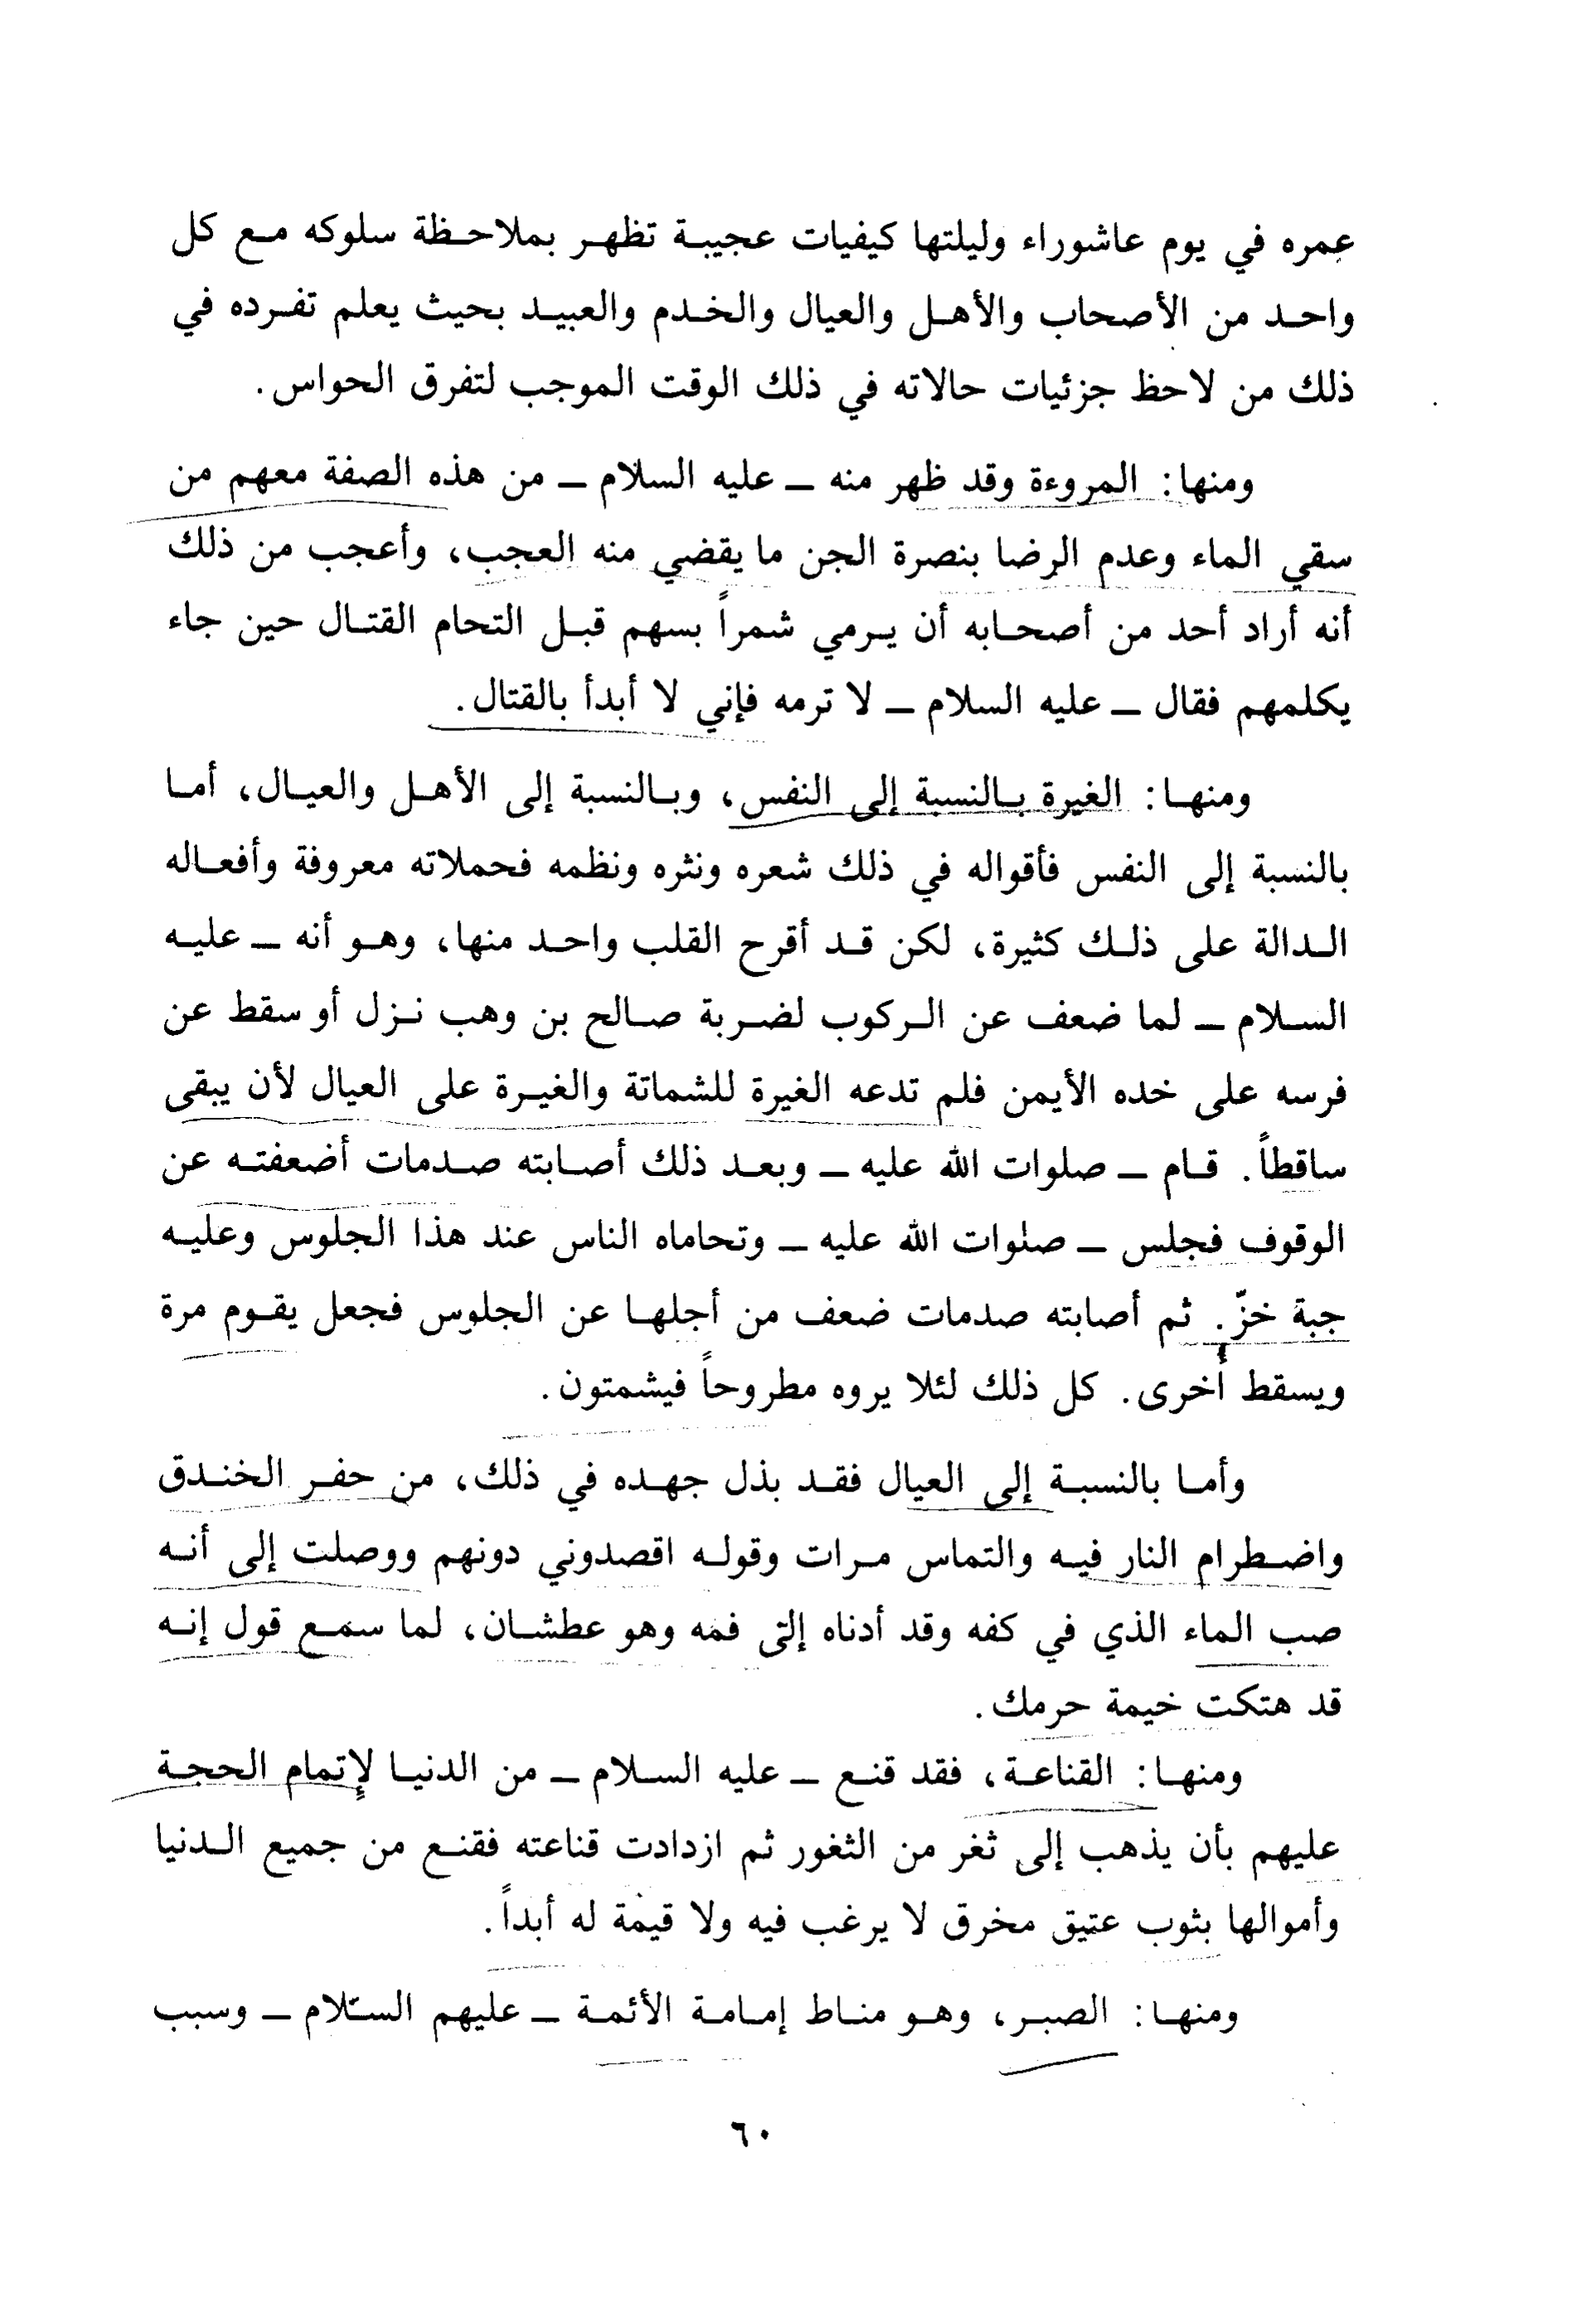 عمره في يوم عاشوراء وليلتها كيفيات عجيبة تظهر بملاحظة سلوكه مع كل
واحد من الأصحاب والأهل والعيال والخدم والعبيد بحيث يعلم تفرده في
ذلك من لاحظ جزئيات حالاته في ذلك الوقت الموجب لتفرق الحواس.
ومنها: المروءة وقد ظهر منه ــ عليه السلام ــ من هذه الصفة معهم من
سقي الماء وعدم الرضا بنصرة الجن ما يقضي منه العجب، وأعجب من ذلك
أنه أراد أحد من أصحابه أن يرمي شمراً بسهم قبل التحام القتال حين جاء
يكلمهم فقال ــ عليه السلام ــ لا ترمه فإني لا أبدأ بالقتال.
ومنها: الغيرة بالنسبة إلى النفس، وبالنسبة إلى الأهل والعيال، أما
بالنسبة إلى النفس فأقواله في ذلك شعره ونثره ونظمه فحملاته معروفة وأفعاله
الدالة على ذلك كثيرة، لكن قد أقرح القلب واحد منها، وهو أنه ــ عليه
السلام ــ لما ضعف عن الركوب لضربة صالح بن وهب نزل أو سقط عن
فرسه على خده الأيمن فلم تدعه الغيرة للشماتة والغيرة على العيال لأن يبقى
ساقطاً. قام ــ صلوات الله عليه ــ وبعد ذلك أصابته صدمات أضعفته عن
الوقوف فجلس ــ صلوات الله عليه ــ وتحاماه الناس عند هذا الجلوس وعليه
جبة خزّ. ثم أصابته صدمات ضعف من أجلها عن الجلوس فجعل يقوم مرة
ويسقط أخرى. كل ذلك لئلا يروه مطروحاً فيشمتون.
وأما بالنسبة إلى العيال فقد بذل جهده في ذلك، من حفر الخندق
واضطرام النار فيه والتماس مرات وقوله اقصدوني دونهم ووصلت إلى أنه
صب الماء الذي في كفه وقد أدناه إلى فمه وهو عطشان، لما سمع قول إنه
قد هتكت خيمة حرمك.
ومنها: القناعة، فقد قنع ــ عليه السلام ــ من الدنيا لإتمام الحجة
عليهم بأن يذهب إلى ثغر من الثغور ثم ازدادت قناعته فقنع من جميع الدنيا
وأموالها بثوب عتيق مخرق لا يرغب فيه ولا قيمة له أبداً.
ومنها: الصبر، وهو مناط إمامة الأئمة ــ عليهم السّلام ــ وسبب
٦٠